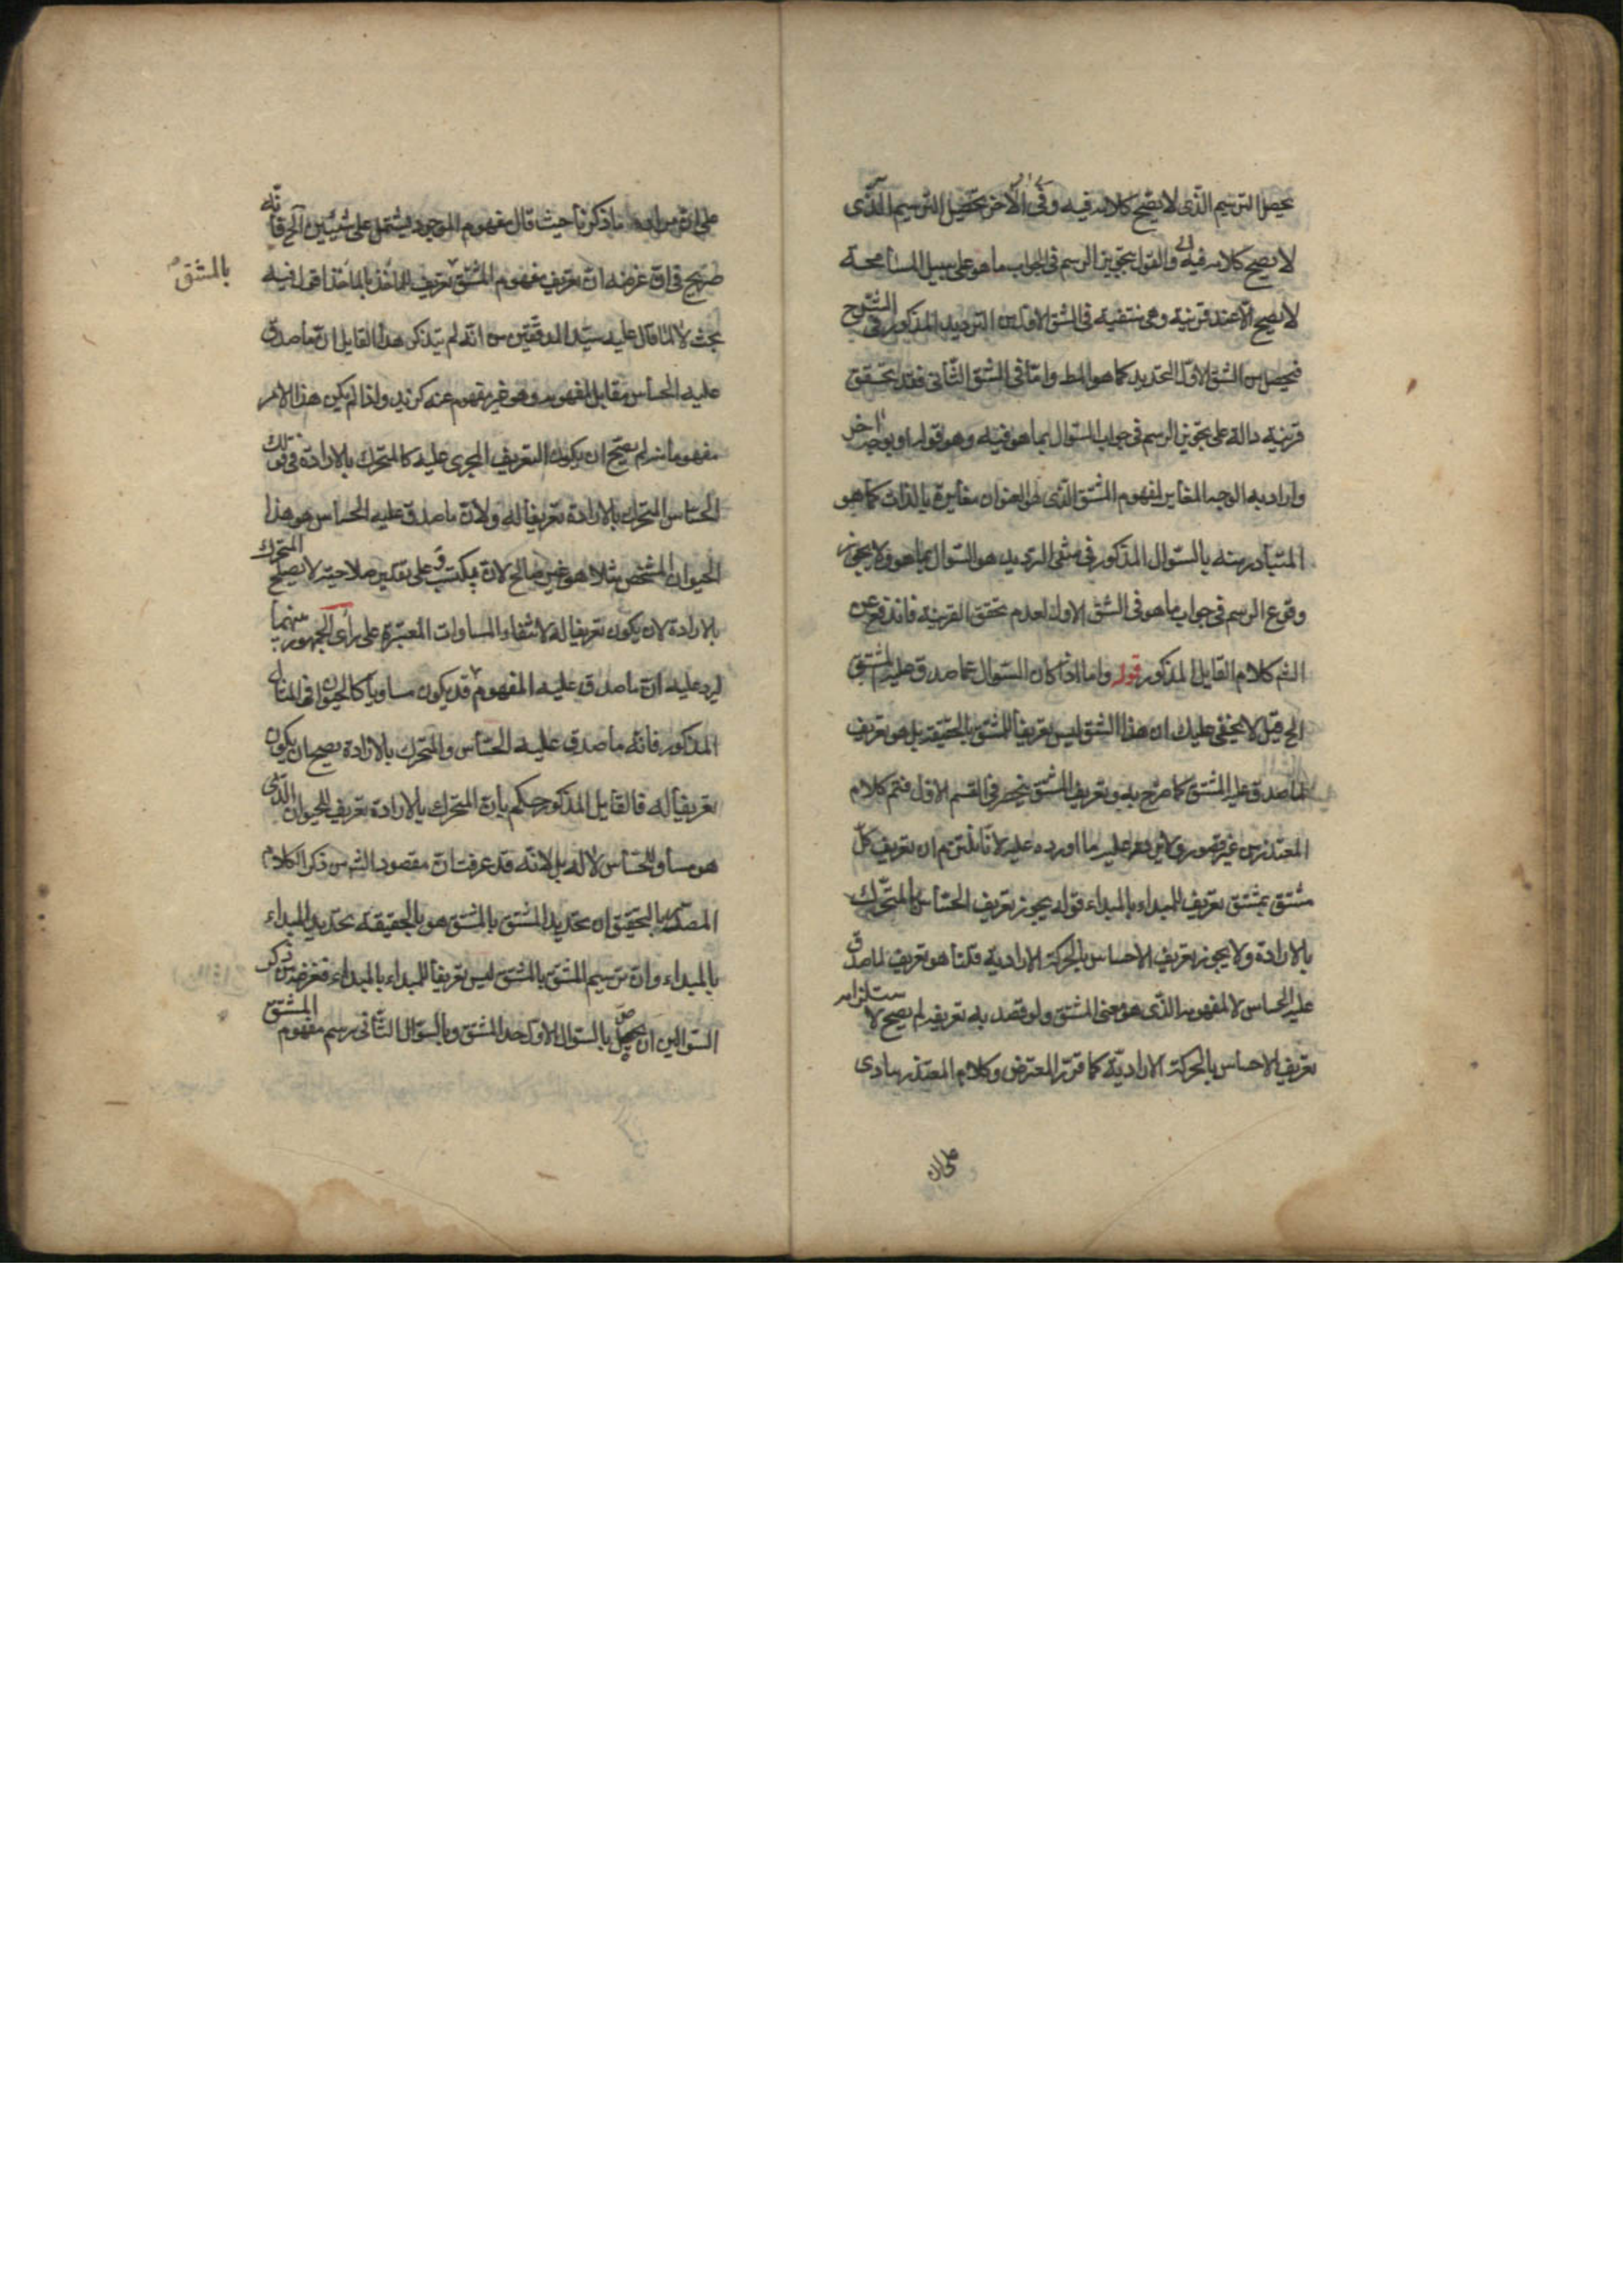 يحصل الترسيم الذى لا يصح كلامه فيه وفى الآخر تحصيل الترسيم الذى
لا يصح كلامه فيه والقول بتجويز الرسم فى الجواب ما هو على سبيل المسامحة
لا يصح الا عند قرينة وهى منتفية فى الشق الاول من الترديد المذكور فى الشرح
فيحصل من الشق الاول التحديد كما هو المط واما فى الشق الثانى فقد تحقق
قرينة دالة على تجويز الرسم فى جواب السؤال بما هو فيه وهو قوله او بوجه اخر
واراد به الوجه المغاير لمفهوم المشتق الذى هو العنوان مغايرة بالذات كما هو
المتبادر منه بالسؤال المذكور فى شقى الترديد هو السؤال بما هو فلا يجوز
وقوع الرسم فى جواب ما هو فى الشق الاول لعدم تحقق القرينة فاندفع عن
الش كلام القايل المذكور قوله واما اذا كان السؤال عما صدق عليه المشتق
الخ قيل لا يخفى عليك ان هذا الشق ليس تعريفا للمشتق بالحقيقة بل هو تعريف
لما صدق عليه المشتق كما صرح به وتعريف المشتق ينحصر فى القسم الاول فتم كلام
المعتذر من غير قصور ولا يرد عليه ما اورده عليه لانا نلتزم ان تعريف كل
مشتق بمشتق تعريف للمبداء بالمبداء قوله يجوز تعريف الحساس بالمتحرك
بالارادة ولا يجوز تعريف الاحساس بالحركة الارادية قلنا هو تعريف لما صدق
عليه الحساس لا لمفهومه الذى هو معنى المشتق ولو قصد به تعريفه لم يصح لا ستلزامه
تعريف الاحساس بالحركة الارادية كما قرر المعترض وكلام المعتذر ينادى
على ان
على ان مراده ما ذكرنا حيث قال مفهوم الموجود يشتمل على شيئين الخ فانه
صريح فى ان غرضه ان تعريف مفهوم المشتق تعريف المأخذ بالمأخذ اقول فيه
بالمشتق
بحث لا لما قال عليه سيد المدققين من انه لم يتذكر هذا القايل ان ما صدق
عليه الحساس مقابل المفهوم وهو غير مفهوم عنه كزيد واذا لم يكن هذا الامر
مفهوما منه لم يصح ان يكون التعريف المجرى عليه كالمتحرك بالارادة فى قولك
الحساس المتحرك بالارادة تعريفا له ولان ما صدق عليه الحساس هو هذا
الحيوان المشخص مثلا هو غير صالح لان يكتسب وعلى تقدير صلاحيته لا يصلح المتحرك
بالارادة لان يكون تعريفا له لانتفاء المساوات المعتبرة على رأى الجمهور بينهما
ليرد عليه ان ما صدق عليه المفهوم قد يكون مساويا كالحيوان فى المثال
المذكور فانه ما صدق عليه الحساس والمتحرك بالارادة يصح ان يكون
تعريفا له فالقايل المذكور حكم بان المتحرك بالارادة تعريف للحيوان الذى
هو مساو للحساس لا له بل لانه قد عرفت ان مقصود الش من ذكر الكلام
المصدر بالتحقيق ان تحديد المشتق بالمشتق هو بالحقيقة تحديد المبداء
بالمبداء وان ترسيم المشتق بالمشتق ليس تعريفا للمبداء بالمبداء فغرضه من ذكر
السؤالين ان يحصل بالسؤال الاول حد المشتق وبالسؤال الثانى رسم مفهوم المشتق